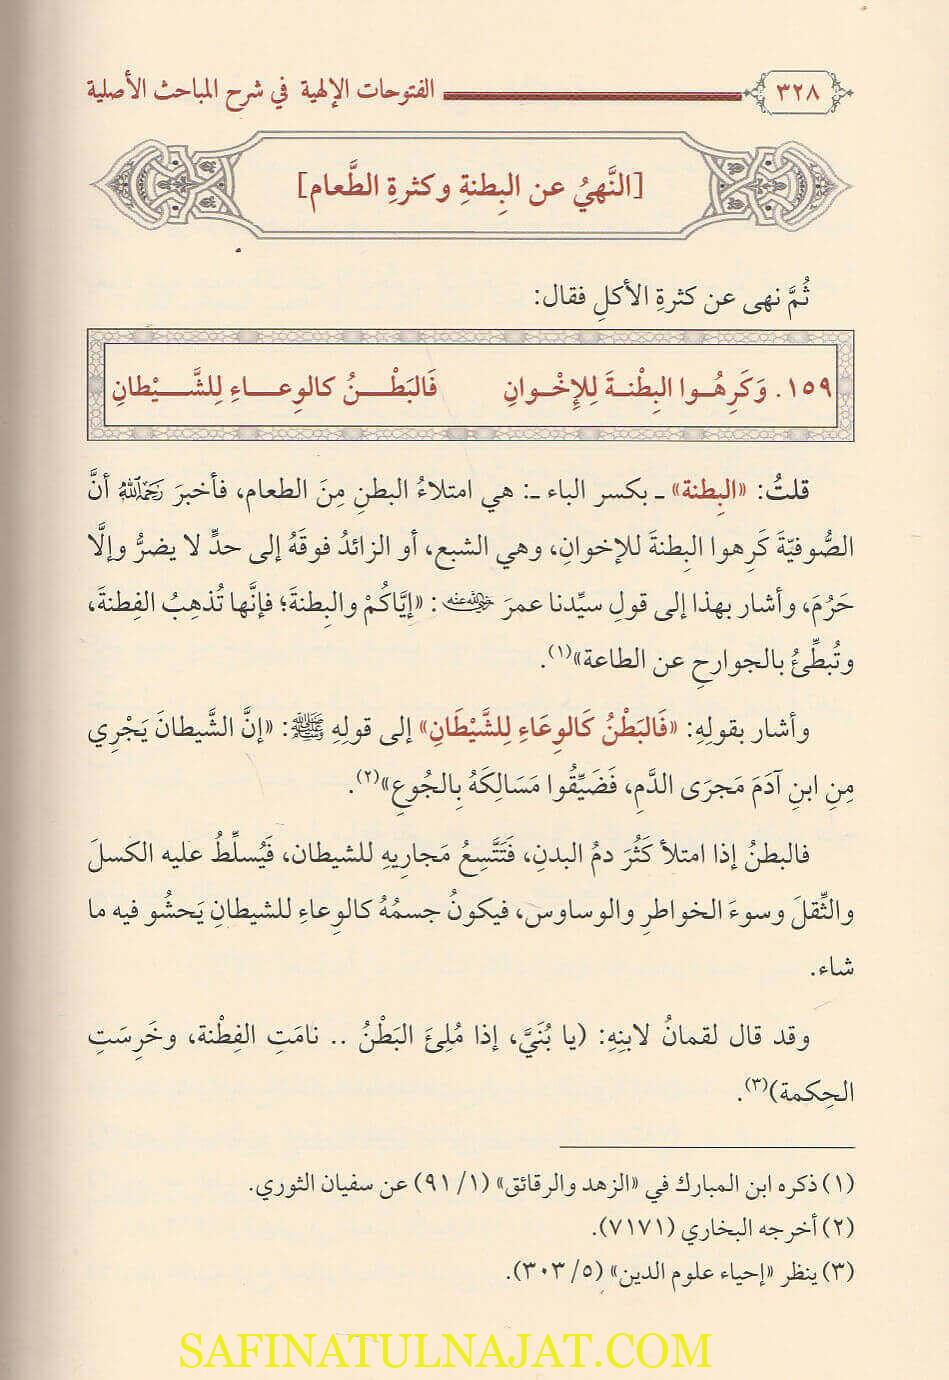 ٣٢٨ الفتوحات الإلهية في شرح المباحث الأصلية
[النَّهيُ عن البِطنةِ وكثرةِ الطَّعام]
ثُمَّ نهى عن كثرةِ الأكلِ فقال:
١٥٩. وَكَرِهُـوا البِطْنـةَ لِلإِخْـوانِ فَالبَطْـــنُ كالوِعـــاءِ لِلشَّـــيْطانِ
قلتُ: «البِطنة» ـ بكسر الباء ـ: هي امتلاءُ البطنِ مِنَ الطعام، فأخبرَ رَحِمَهُ اللهُ أنَّ
الصُّوفيّةَ كَرِهوا البِطنةَ للإخوانِ، وهي الشبع، أو الزائدُ فوقَهُ إلى حدٍّ لا يضرُّ وإلَّا
حَرُمَ، وأشار بهذا إلى قولِ سيِّدنا عمرَ رَضِيَ اللهُ عَنْهُ: «إيَّاكُمْ والبِطنةَ؛ فإنَّها تُذهِبُ الفِطنةَ،
وتُبطِّئُ بالجوارحِ عن الطاعة»(١).
وأشار بقولِهِ: «فَالبَطْنُ كَالوِعَاءِ لِلشَّيْطَانِ» إلى قولِهِ ﷺ: «إنَّ الشَّيطانَ يَجْرِي
مِنِ ابنِ آدَمَ مَجرَى الدَّمِ، فَضَيِّقُوا مَسَالِكَهُ بِالجُوعِ»(٢).
فالبطنُ إذا امتلأ كَثُرَ دمُ البدنِ، فَتَتَّسِعُ مَجاريهِ للشيطان، فَيُسلِّطُ عليه الكسلَ
والثِّقلَ وسوءَ الخواطرِ والوساوس، فيكونُ جسمُهُ كالوِعاءِ للشيطانِ يَحشُو فيه ما
شاء.
وقد قال لقمانُ لابنِهِ: (يا بُنَيَّ، إذا مُلِئَ البَطْنُ .. نامَتِ الفِطْنة، وخَرِسَتِ
الحِكمة)(٣).
(١) ذكره ابن المبارك في «الزهد والرقائق» (١/ ٩١) عن سفيان الثوري.
(٢) أخرجه البخاري (٧١٧١).
(٣) ينظر «إحياء علوم الدين» (٥/ ٣٠٣).
SAFINATULNAJAT.COM